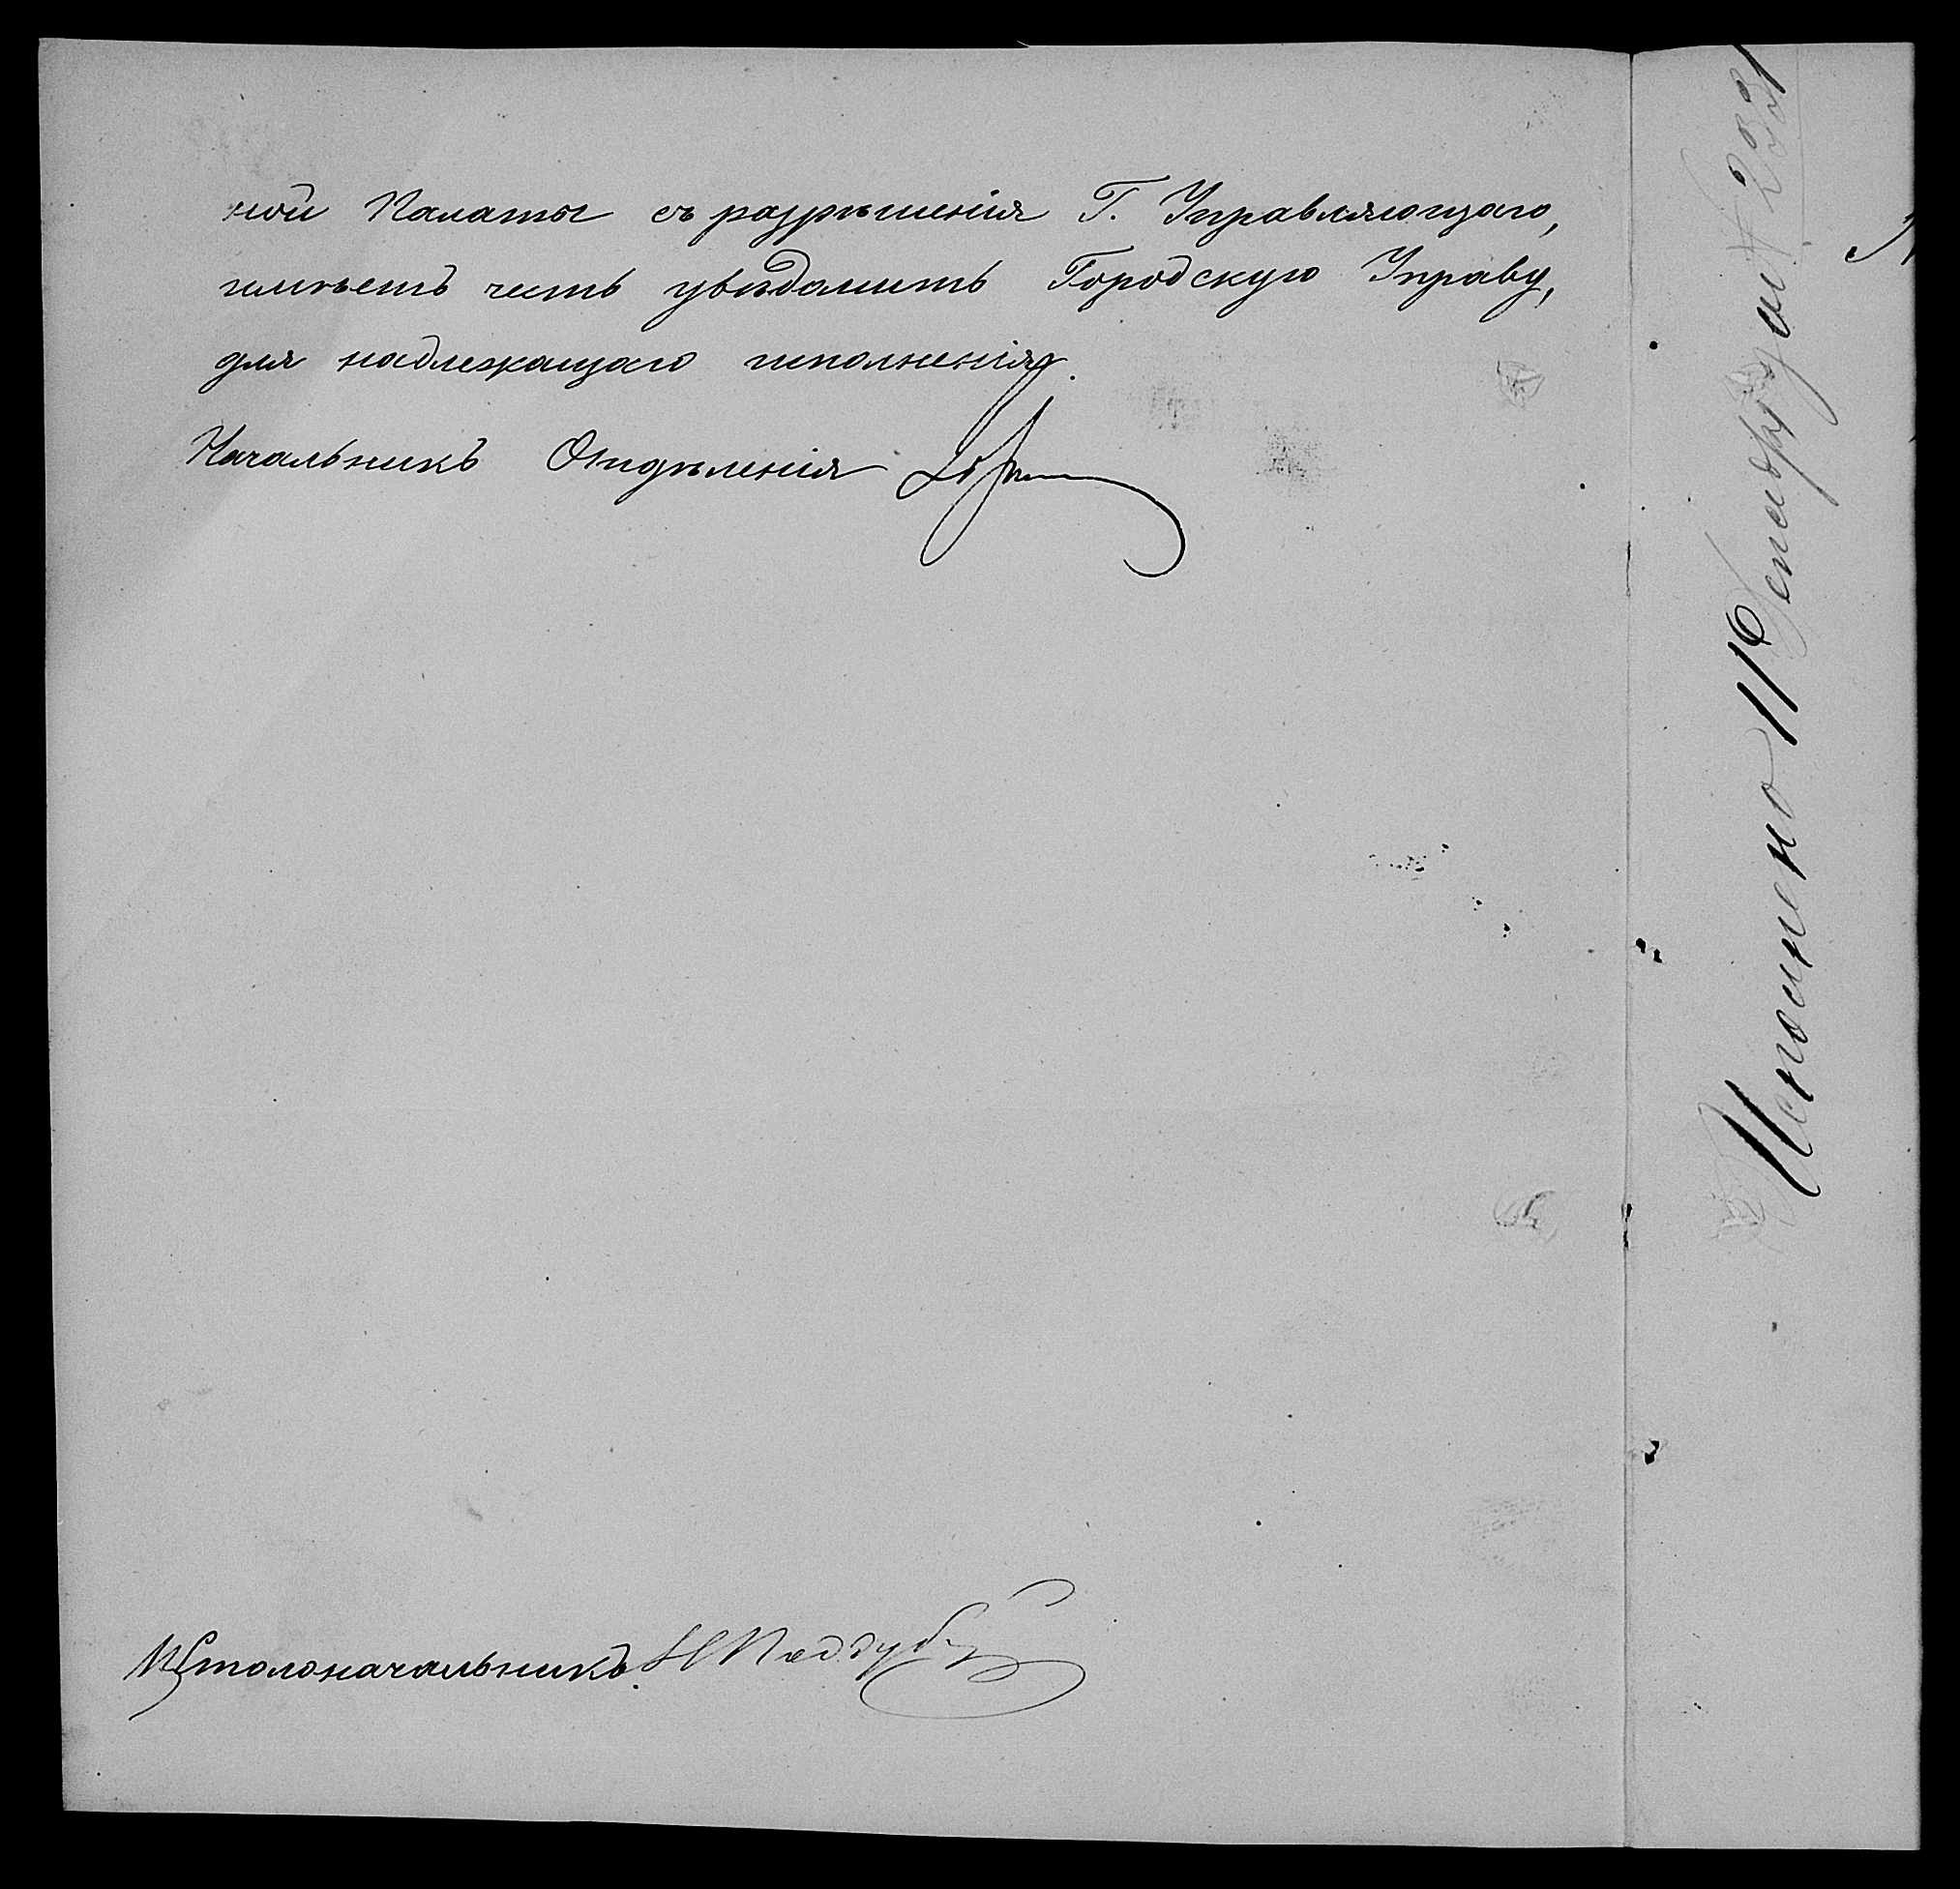 ной Палаты съ разрѣшенія Г. Управляющаго,
имѣетъ честь увѣдомить Городскую Управу,
для надлежащаго исполненія.
Начальникъ Отдѣленія
Столоначальникъ Н Поддубн
Исполнено 11 Сентября № 2931